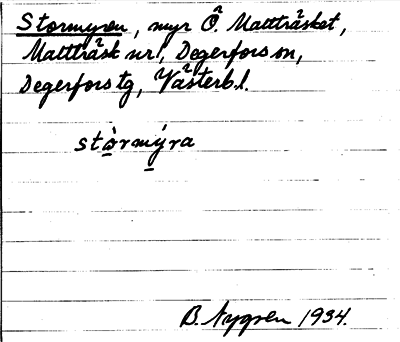 Stormyren, myr Ö. Mattträsket,
Mattträsk nr 1, Degerfors sn,
Degerfors tg, Västerb. l.
stòrmýra
B. Nygren 1934.